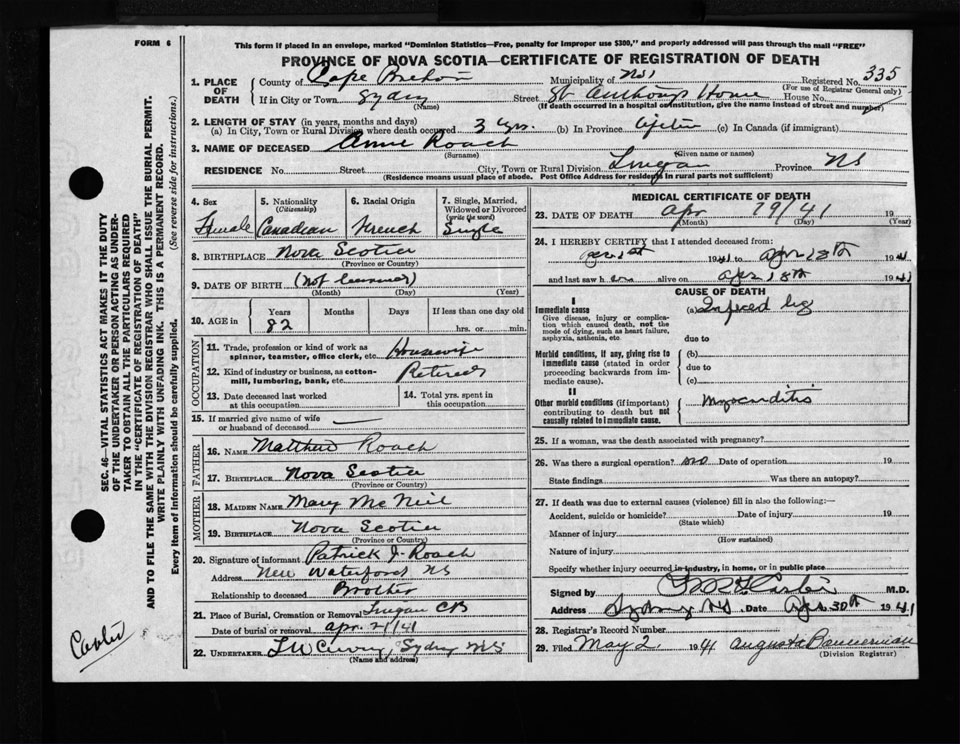 FORM 6
This form if placed in an envelope, marked "Dominion Statistics—Free, penalty for improper use $300," and properly addressed will pass through the mail "FREE"
PROVINCE OF NOVA SCOTIA—CERTIFICATE OF REGISTRATION OF DEATH
1. PLACE OF DEATH
County of Cape Breton Municipality of NS Registered No. 335
(For use of Registrar General only)
If in City or Town Sydney Street St Anthony's Home House No.
(Name) (If death occurred in a hospital or institution, give the name instead of street and number)
2. LENGTH OF STAY (in years, months and days)
(a) In City, Town or Rural Division where death occurred 3 yrs. (b) In Province Life (c) In Canada (if immigrant)
3. NAME OF DECEASED Annie Roach
(Surname) (Given name or names)
RESIDENCE No. Street City, Town or Rural Division Lingan Province NS
(Residence means usual place of abode. Post Office Address for residents in rural parts not sufficient)
4. Sex Female
5. Nationality (Citizenship) Canadian
6. Racial Origin French
7. Single, Married, Widowed or Divorced (write the word) Single
8. BIRTHPLACE Nova Scotia
(Province or Country)
9. DATE OF BIRTH
(Month) (Day) (Year)
10. AGE in Years 82 Months Days If less than one day old hrs. or min.
OCCUPATION
11. Trade, profession or kind of work as spinner, teamster, office clerk, etc. Housewife
12. Kind of industry or business, as cotton-mill, lumbering, bank, etc. Retired
13. Date deceased last worked at this occupation
14. Total yrs. spent in this occupation
15. If married give name of wife or husband of deceased
FATHER
16. NAME Matthew Roach
17. BIRTHPLACE Nova Scotia
(Province or Country)
MOTHER
18. MAIDEN NAME Mary McNeil
19. BIRTHPLACE Nova Scotia
(Province or Country)
20. Signature of informant Patrick J. Roach
Address New Waterford NS
Relationship to deceased Brother
21. Place of Burial, Cremation or Removal Lingan CB
Date of burial or removal Apr. 21/41
22. UNDERTAKER Sydney NS
(Name and address)
MEDICAL CERTIFICATE OF DEATH
23. DATE OF DEATH Apr 19/41 19
(Month) (Day) (Year)
24. I HEREBY CERTIFY that I attended deceased from:
1941 to Apr 18th 1941
and last saw h er alive on Apr 18th 1941
CAUSE OF DEATH
I
Immediate cause
Give disease, injury or complication which caused death, not the mode of dying, such as heart failure, asphyxia, asthenia, etc
(a)
due to
Morbid conditions, if any, giving rise to immediate cause (stated in order proceeding backwards from immediate cause).
(b)
due to
(c)
II
Other morbid conditions (if important) contributing to death but not causally related to immediate cause.
Myocarditis
25. If a woman, was the death associated with pregnancy?
26. Was there a surgical operation? no Date of operation 19
State findings Was there an autopsy?
27. If death was due to external causes (violence) fill in also the following:—
Accident, suicide or homicide? Date of injury 19
(State which)
Manner of injury
(How sustained)
Nature of injury
Specify whether injury occurred in industry, in home, or in public place
Signed by M.D.
Address Sydney NS Date Apr 30th 1941
28. Registrar's Record Number
29. Filed May 2 1941 Augusta Bannerman
(Division Registrar)
SEC. 46—VITAL STATISTICS ACT MAKES IT THE DUTY
OF THE UNDERTAKER OR PERSON ACTING AS UNDERTAKER TO OBTAIN ALL THE PARTICULARS REQUIRED
IN THE "CERTIFICATE OF REGISTRATION OF DEATH"
AND TO FILE THE SAME WITH THE DIVISION REGISTRAR WHO SHALL ISSUE THE BURIAL PERMIT.
WRITE PLAINLY WITH UNFADING INK. THIS IS A PERMANENT RECORD.
Every item of information should be carefully supplied. (See reverse side for instructions.)